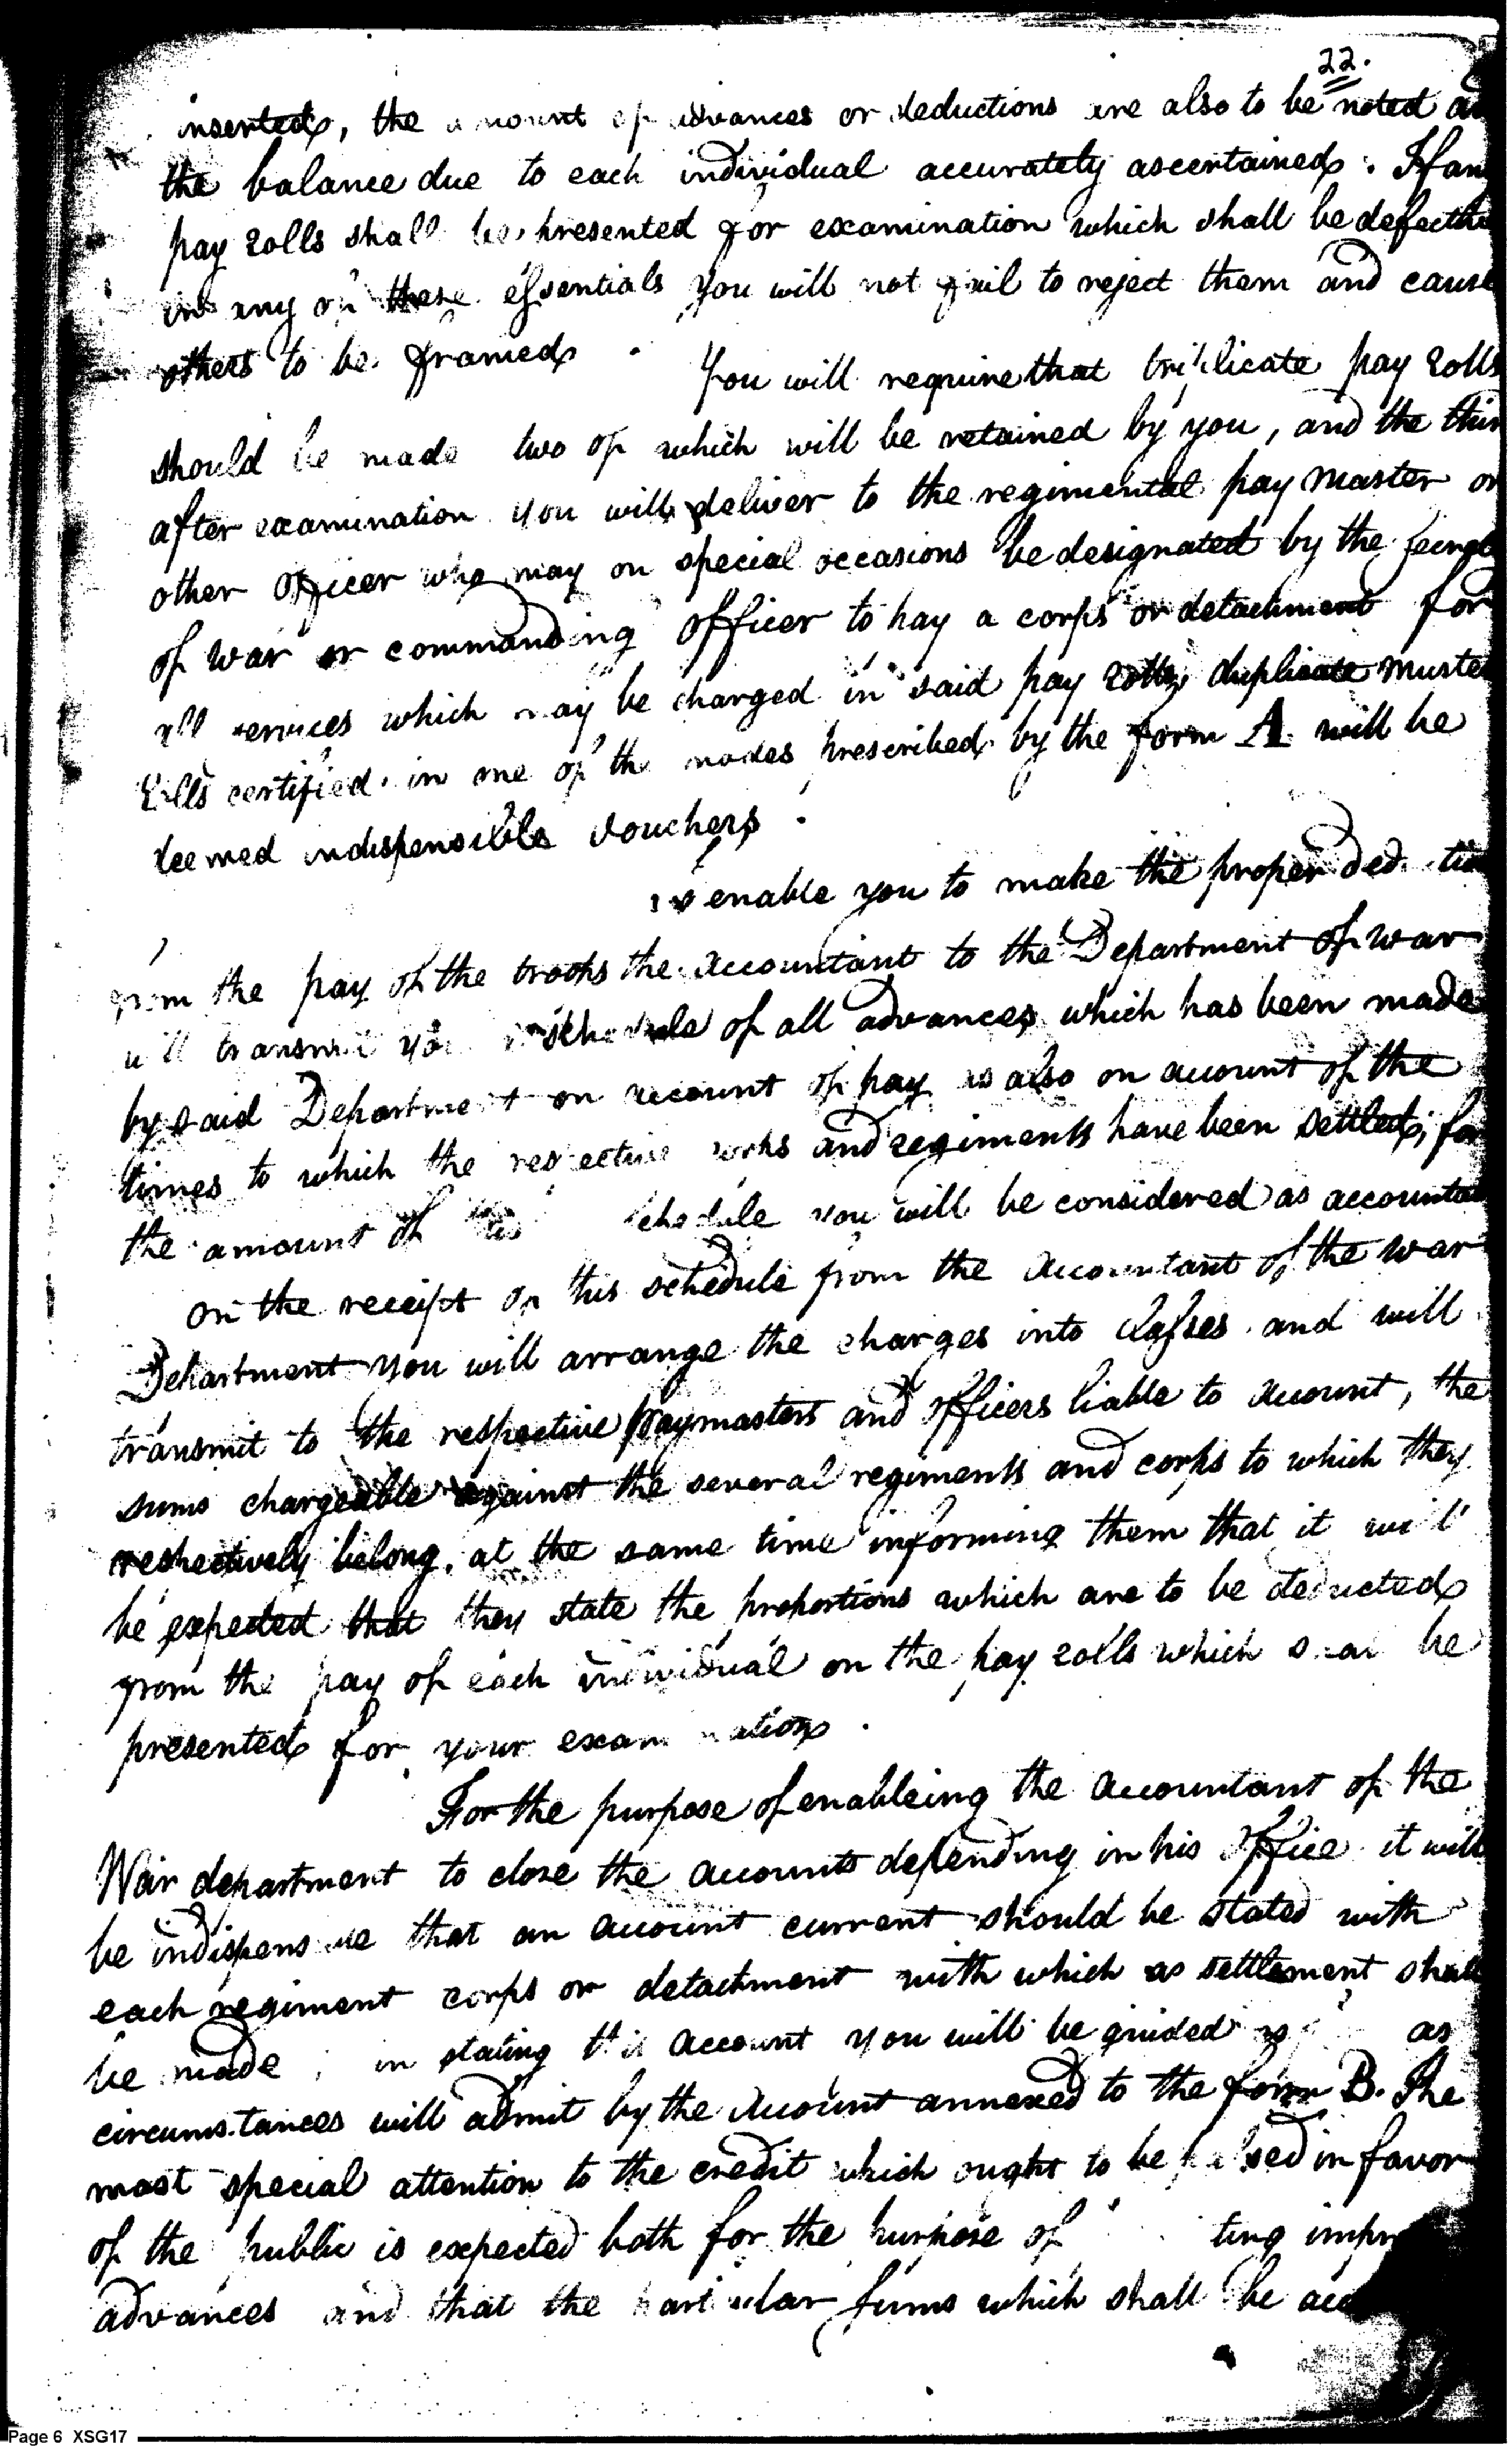 22.
inserted, the amount of advances or deductions are also to be noted
the balance due to each individual accurately ascertained. If any
pay rolls shall be presented for examination which shall be defective
in any of these essentials you will not fail to reject them and cause
others to be framed. You will require that triplicate pay rolls
should be made two of which will be retained by you, and the third
after examination you will deliver to the regimental pay Master or
other officer who may on special occasions be designated by the
of War or commanding officer to pay a corps or detachment for
all services which may be charged in said pay rolls, duplicate muster
rolls certified in one of the modes prescribed by the form A will be
deemed indispensible vouchers.
To enable you to make the proper
from the pay of the troops the accountant to the Department of War
will transmit you a schedule of all advances which has been made
by said Department on account of pay as also on account of the
times to which the respective corps and regiments have been settled, for
the amount of this schedule you will be considered as
on the receipt of this schedule from the accountant of the War
Department you will arrange the charges into classes and will
transmit to the respective paymasters and officers liable to account, the
sums chargeable against the several regiments and corps to which they
respectively belong, at the same time informing them that it will
be expected that they state the proportions which are to be deducted
from the pay of each individual on the pay rolls which shall be
presented for your examination.
For the purpose of enableing the accountant of the
War department to close the accounts depending in his office it will
be that an account current should be stated with
each regiment corps or detachment with which as settlement shall
be made; in stating this account you will be guided as
circumstances will admit by the account annexed to the form B. The
most special attention to the credit which ought to be passed in favor
of the public is expected both for the purpose of
advances and that the particular sums which shall be
Page 6 XSG17